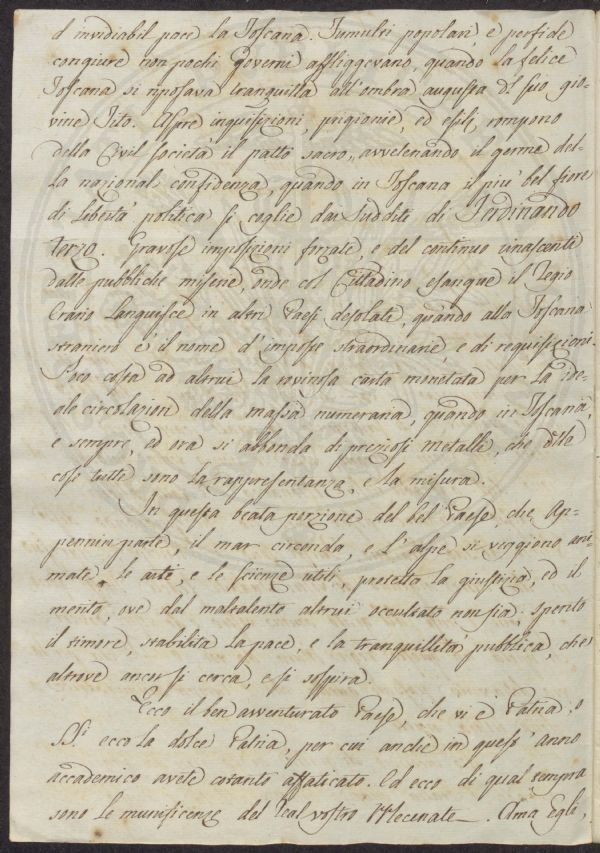 d'invidiabil pace la Toscana. Tumulti popolari, e perfide
congiure non pochi Governi affliggevano, quando la felice
Toscana si riposava tranquilla all'ombra augusta del suo gio-
vine Tito. Aspre inquisizioni, prigionie, ed esilj rompono
della Civil società il patto sacro, avvelenando il germe del-
la nazional confidenza, quando in Toscana il più bel fiore
di Libertà politica si coglie dai sudditi di Ferdinando
terzo. Gravose imposizioni forzate, e del continuo rinascenti
dalle pubbliche miserie, onde col Cittadino esangue il Regio
Erario Languisce in altri Paesi desolati, quando alla Toscana
straniero è il nome d'imposte straordinarie, e di requisizioni.
Poco costa ad altrui la rovinosa carta monetata per la ide-
ale circolazion della massa numeraria, quando in Toscana,
e sempre, ed ora si abbonda di preziosi metalli, che delle
cose tutte sono la rappresentanza, e la misura.
In questa beata porzione del bel Paese, che Ap-
pennin parte, il mar circonda, e l'alpe si veggiono ani-
mate le arti, e le scienze utili, protetta la giustizia, ed il
merito, ove dal maltalento altrui occultato non sia; spento
il timore, stabilita la pace, e la tranquillità pubblica, che
altrove ancor si cerca, e si sospira.
Ecco il ben avventurato Paese, che vi è Patria, o
SS.i ecco la dolce Patria, per cui anche in quest'anno
accademico avete cotanto affaticato. Ed ecco di qual tempra
sono le munificenze del Real vostro Mecenate. Ama Egli,